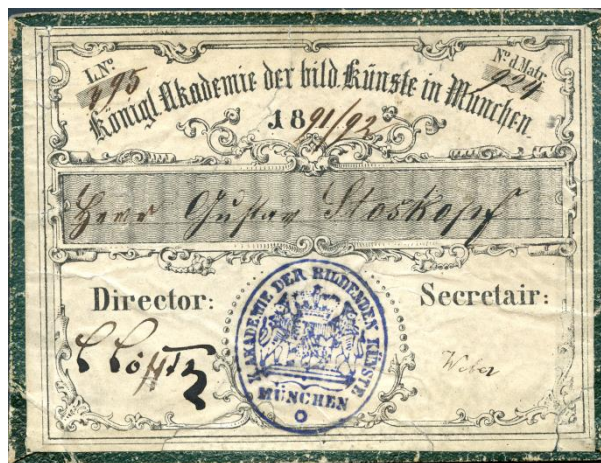 I.Nº
Nº d. Matr.
924
Königl. Akademie der bild. Künste in München.
1891/92
Herr Gustav Stoskopf
Director:
Secretair:
Löfftz
Weber
AKADEMIE DER BILDENDEN KÜNSTE
MÜNCHEN